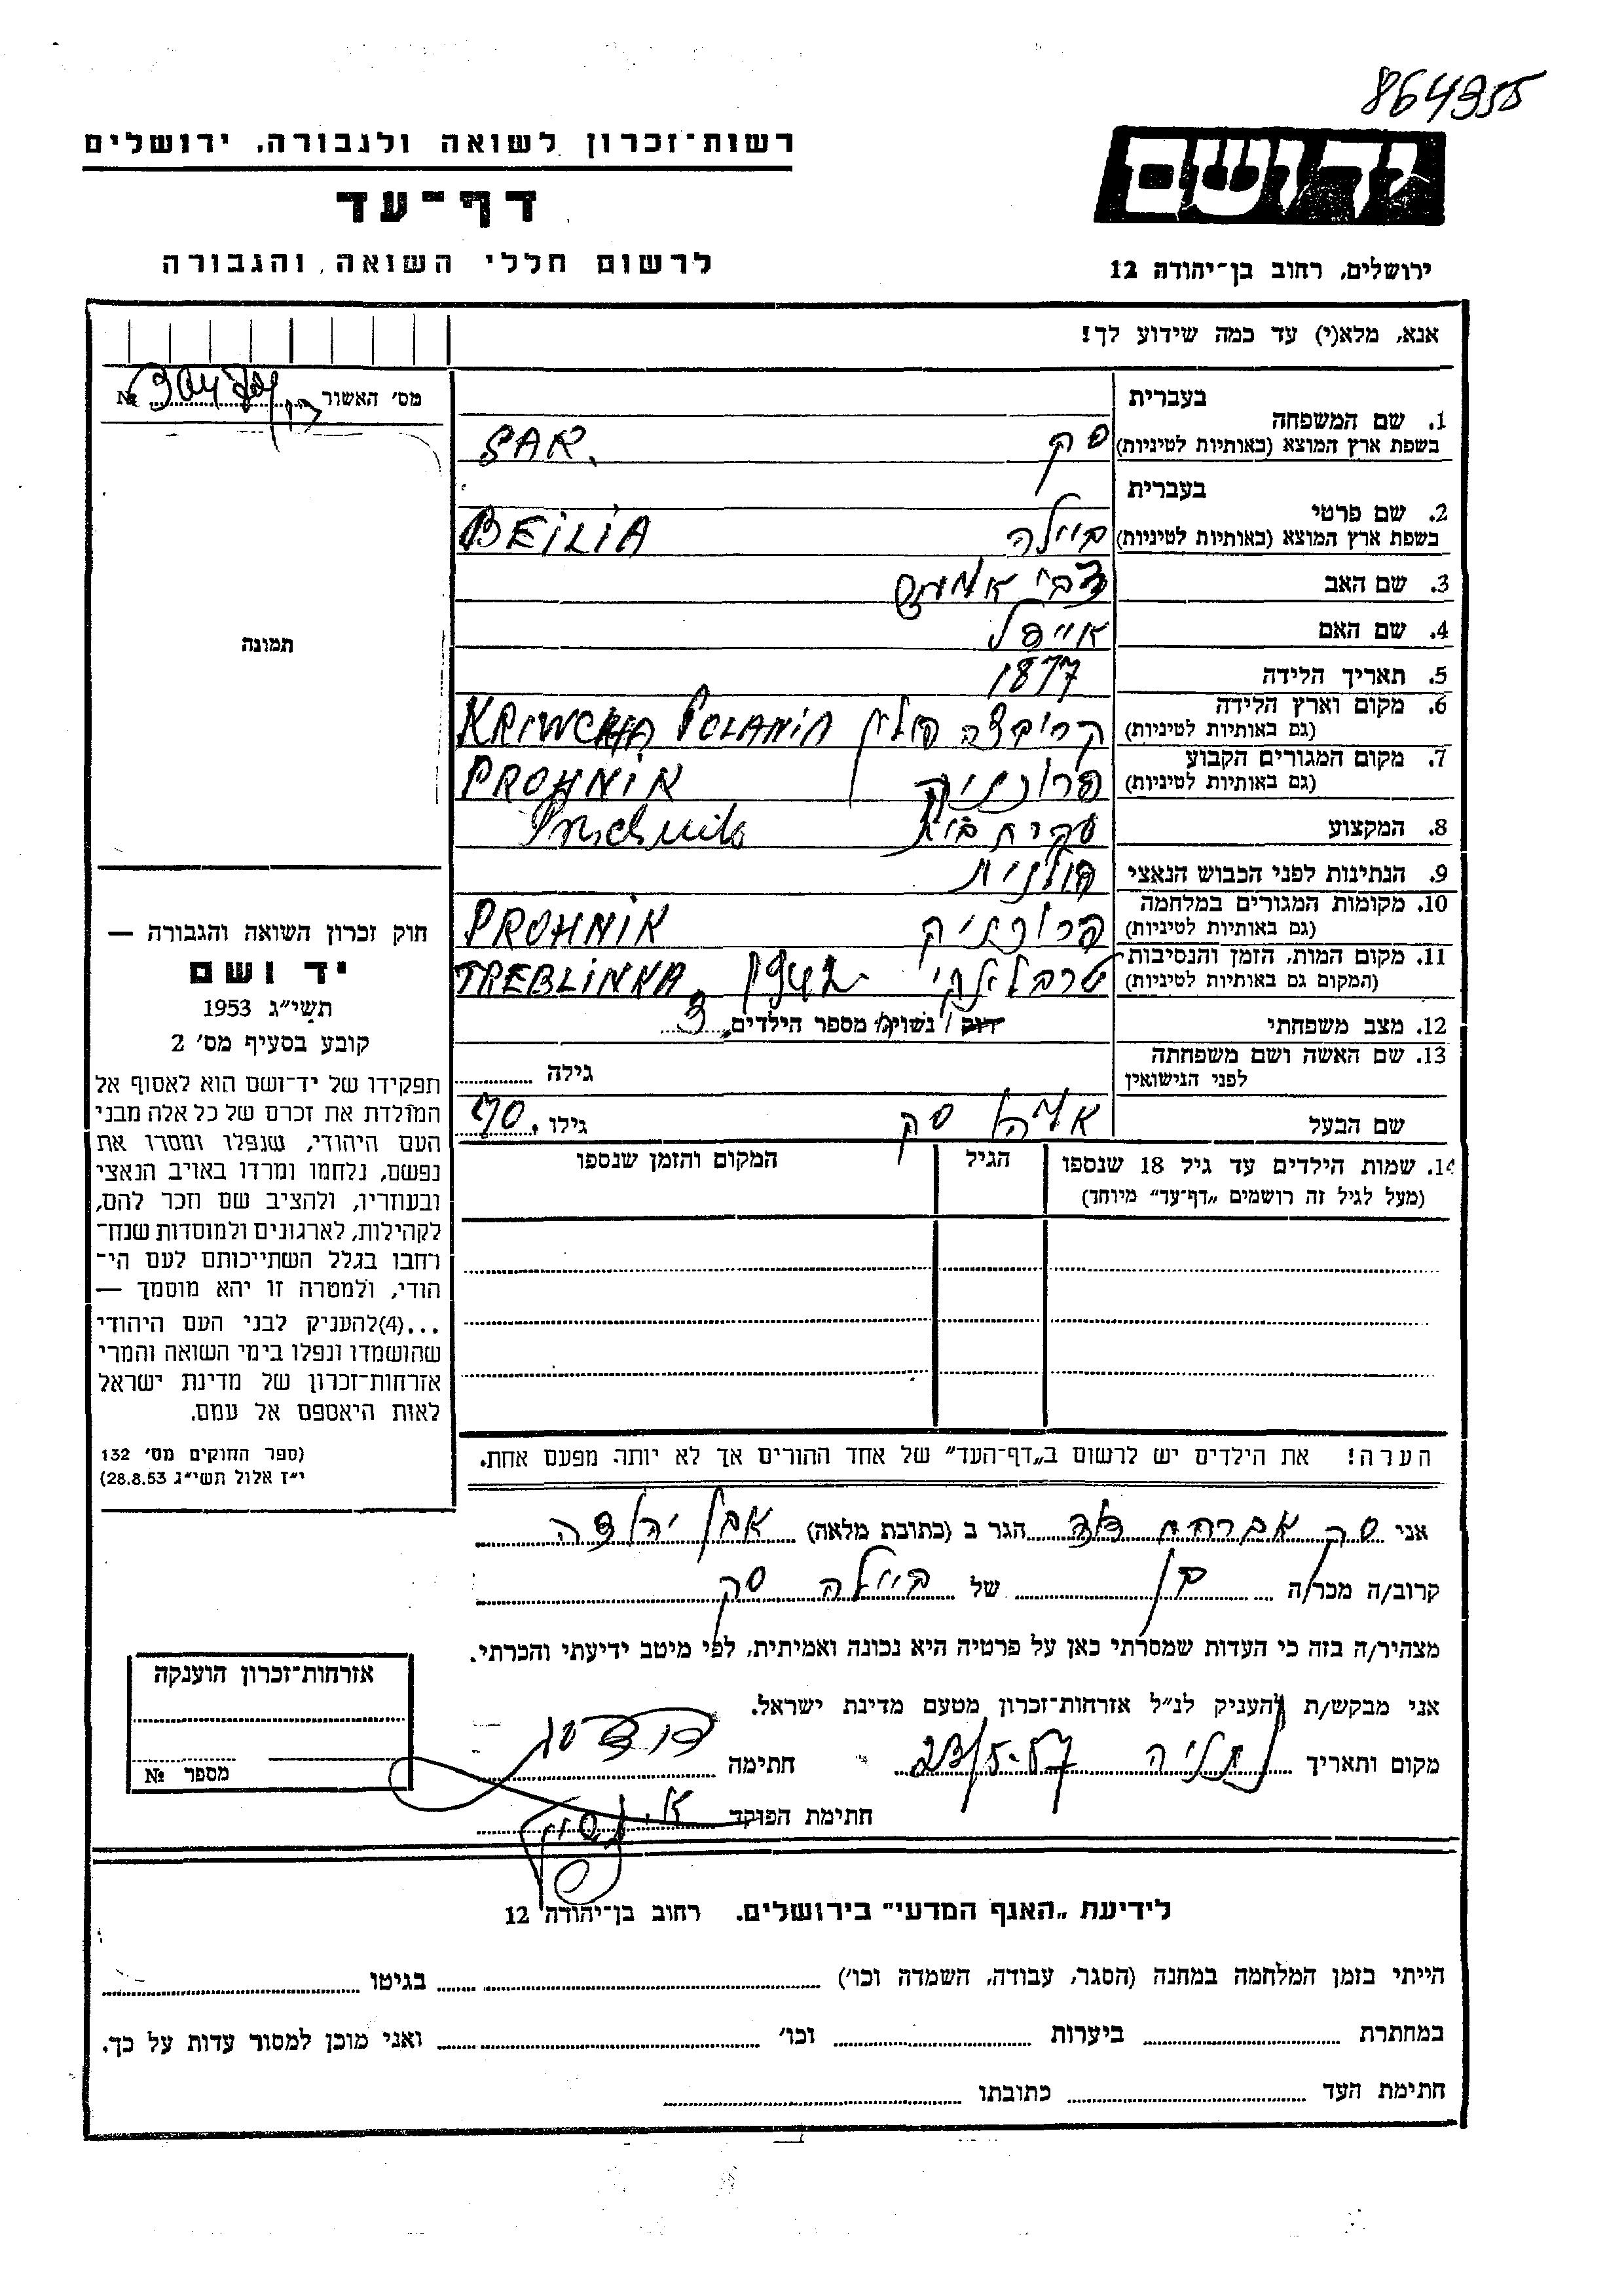 864355
רשות־זכרון לשואה ולגבורה, ירושלים
דף־עד
לרשום חללי השואה והגבורה
ידושם
ירושלים, רחוב בן־יהודה 12
אנא, מלא(י) עד כמה שידוע לך!
מס׳ האשור № 304
1. שם המשפחה
בעברית
בשפת ארץ המוצא (באותיות לטיניות)
סק SAR.
2. שם פרטי
בעברית
בשפת ארץ המוצא (באותיות לטיניות)
ביילה BEiLiA
3. שם האב צבי
4. שם האם אייסל
5. תאריך הלידה 1877
6. מקום וארץ הלידה
(גם באותיות לטיניות)
קריבצה פולין KRIWCHA POLANiA
7. מקום המגורים הקבוע
(גם באותיות לטיניות)
פרוכניק PROHNiK
8. המקצוע עקרת בית
9. הנתינות לפני הכבוש הנאצי פולנית
10. מקומות המגורים במלחמה
(גם באותיות לטיניות)
פרוכניק PROHNiK
11. מקום המות, הזמן והנסיבות
(המקום גם באותיות לטיניות)
טרבלינקי TREBLiNKA
12. מצב משפחתי
רוק / נשוי/ מספר הילדים 3
13. שם האשה ושם משפחתה
לפני הנישואין
גילה
שם הבעל סק גילו 70
14. שמות הילדים עד גיל 18 שנספו
(מעל לגיל זה רושמים „דף־עד״ מיוחד)
הגיל
המקום והזמן שנספו
הערה! את הילדים יש לרשום ב„דף־העד״ של אחד ההורים אך לא יותר מפעם אחת.
תמונה
חוק זכרון השואה והגבורה —
יד ושם
תשי״ג 1953
קובע בסעיף מס׳ 2
תפקידו של יד־ושם הוא לאסוף אל
המולדת את זכרם של כל אלה מבני
העם היהודי, שנפלו ומסרו את
נפשם, נלחמו ומרדו באויב הנאצי
ובעוזריו, ולהציב שם וזכר להם,
לקהילות, לארגונים ולמוסדות שנח־
רחבו בגלל השתייכותם לעם הי־
הודי, ולמטרה זו יהא מוסמך —
...(4)להעניק לבני העם היהודי
שהושמדו ונפלו בימי השואה והמרי
אזרחות־זכרון של מדינת ישראל
לאות היאספם אל עמם.
(ספר החוקים מס׳ 132
י״ז אלול תשי״ג 28.8.53)
אני סק אברהם דוד הגר ב (כתובת מלאה) אבן יהודה
קרוב/ה מכר/ה בן של ביילה סק
מצהיר/ה בזה כי העדות שמסרתי כאן על פרטיה היא נכונה ואמיתית, לפי מיטב ידיעתי והכרתי.
אני מבקש/ת להעניק לנ״ל אזרחות־זכרון מטעם מדינת ישראל.
מקום ותאריך נתניה 23/5-57 חתימה דוד סק
חתימת הפוקד
אזרחות־זכרון הוענקה
מספר №
לידיעת „האגף המדעי״ בירושלים. רחוב בן־יהודה 12
הייתי בזמן המלחמה במחנה (הסגר, עבודה, השמדה וכו׳) בגיטו
במחתרת ביערות וכו׳ ואני מוכן למסור עדות על כך.
חתימת העד כתובתו